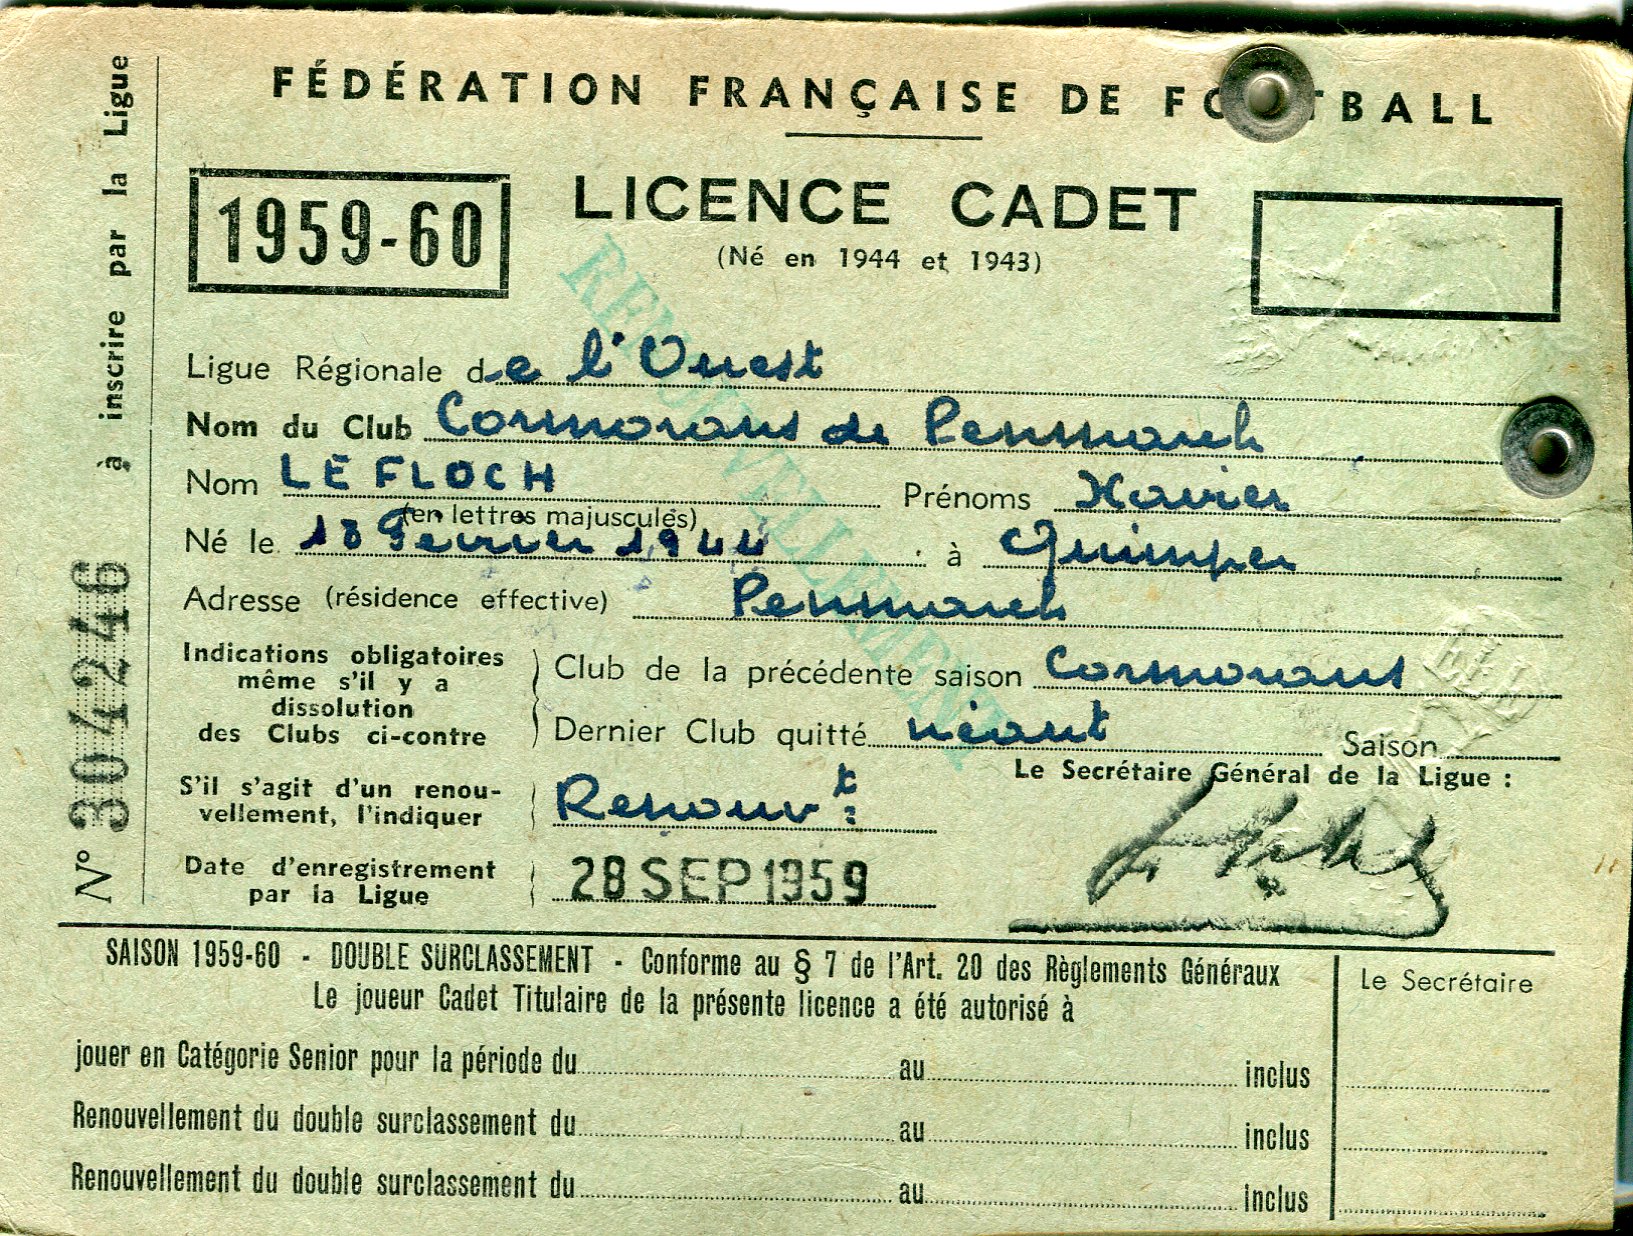 FÉDÉRATION FRANÇAISE DE FOOTBALL
1959-60
LICENCE CADET
(Né en 1944 et 1943)
RENOUVELLEMENT
Ligue Régionale de l'Ouest
Nom du Club Cormorans de Penmarch
Nom LE FLOCH Prénoms Xavier
(en lettres majuscules)
Né le 18 Février 1944 à Quimper
Adresse (résidence effective) Penmarch
Indications obligatoires
même s'il y a
dissolution
des Clubs ci-contre
Club de la précédente saison Cormorans
Dernier Club quitté néant Saison
Le Secrétaire Général de la Ligue :
S'il s'agit d'un renou-
vellement, l'indiquer
Renouvt
Date d'enregistrement
par la Ligue
28 SEP 1959
N° 304246 à inscrire par la Ligue
SAISON 1959-60 - DOUBLE SURCLASSEMENT - Conforme au § 7 de l'Art. 20 des Règlements Généraux
Le joueur Cadet Titulaire de la présente licence a été autorisé à
Le Secrétaire
jouer en Catégorie Senior pour la période du au inclus
Renouvellement du double surclassement du au inclus
Renouvellement du double surclassement du au inclus